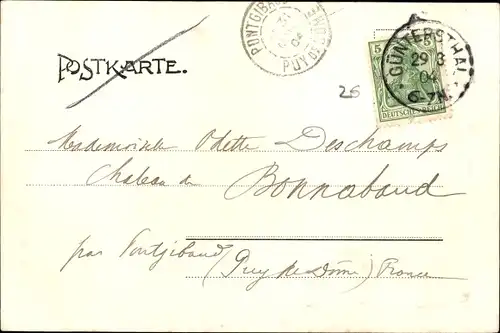 PONTGIBAUD
PUY DE DÔME
5 5
GÜNTERSTHAL
29 3
04
6-7N.
DEUTSCHES REICH
POSTKARTE.
26
Mademoiselle Odette Deschamps
Chateau de Bonnabaud
par Pontgibaud (Puy de Dôme) France